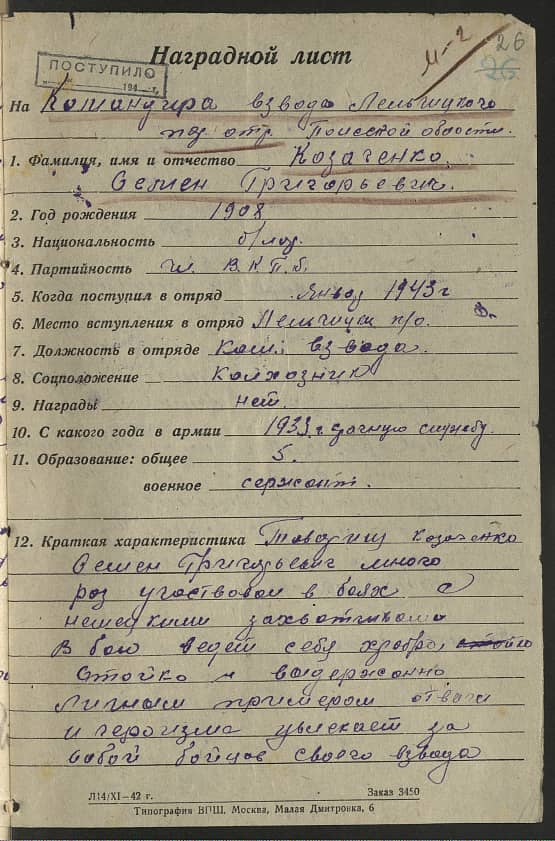 Наградной лист
М-2
26
26
ПОСТУПИЛО
194
На Командира взвода Лельчицкого
парт. отр. Полесской области.
1. Фамилия, имя и отчество Козаченко
Семен Григорьевич.
2. Год рождения 1908
3. Национальность б/лор.
4. Партийность чл. В.К.П.б.
5. Когда поступил в отряд Январ 1943 г
6. Место вступления в отряд Лельчицк р/о.
7. Должность в отряде Ком. взвода.
8. Соцположение Колхозник
9. Награды нет.
10. С какого года в армии 1933 г. срочную службу.
11. Образование: общее 5.
военное сержант.
12. Краткая характеристика Товарищ Козаченко
Семен Григорьевич много
раз участвовал в боях с
немецкими захватчиками
В бою ведет себя храбро,
Стойко и выдержанно
Личным примером отваги
и героизма увлекает за
собой бойцов своего взвода
Л14/XI—42 г.
Заказ 3450
Типография ВПШ. Москва, Малая Дмитровка, 6